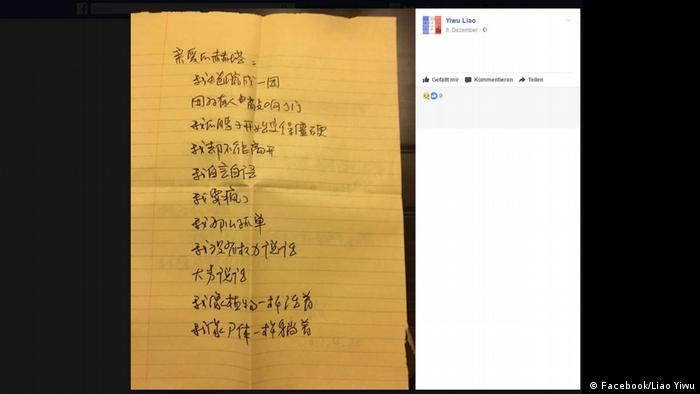 亲爱的赫塔：
缩成一团
因为有人敲响了门
我的脖子开始变得僵硬
我却不能离开
我自言自语
我要疯了
我那么孤单
我没有权力说话
大声说话
我像植物一样活着
我像尸体一样躺着
Yiwu Liao
8. Dezember ·
Gefällt mir Kommentieren Teilen
9
© Facebook/Liao Yiwu